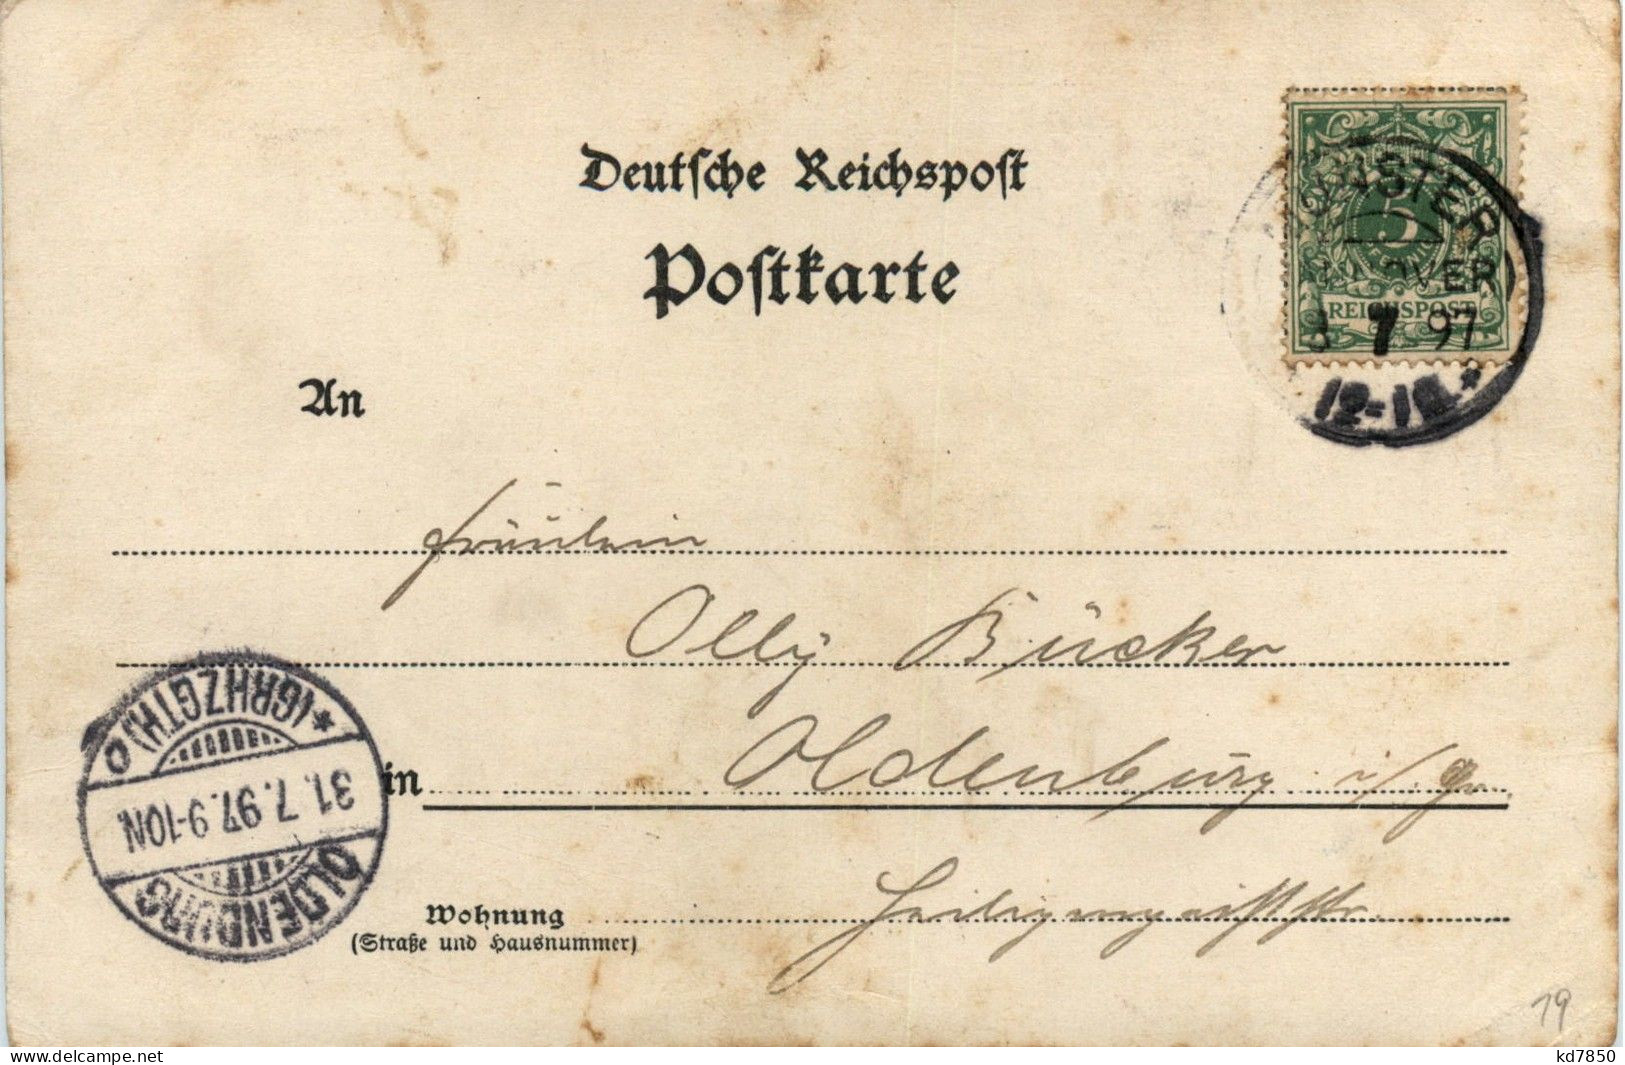 Deutsche Reichspost
Postkarte
5
REICHSPOST
NSTER
OVER
7 97
12-1N*
An
Fräulein
Olly Bücker
in Oldenburg i/Gr.
Wohnung Heiligengeiststr.
(Straße und Hausnummer)
OLDENBURG
31.7.97.9-10N.
*(GRHZGTH)
19
kd7850
delcampe.net